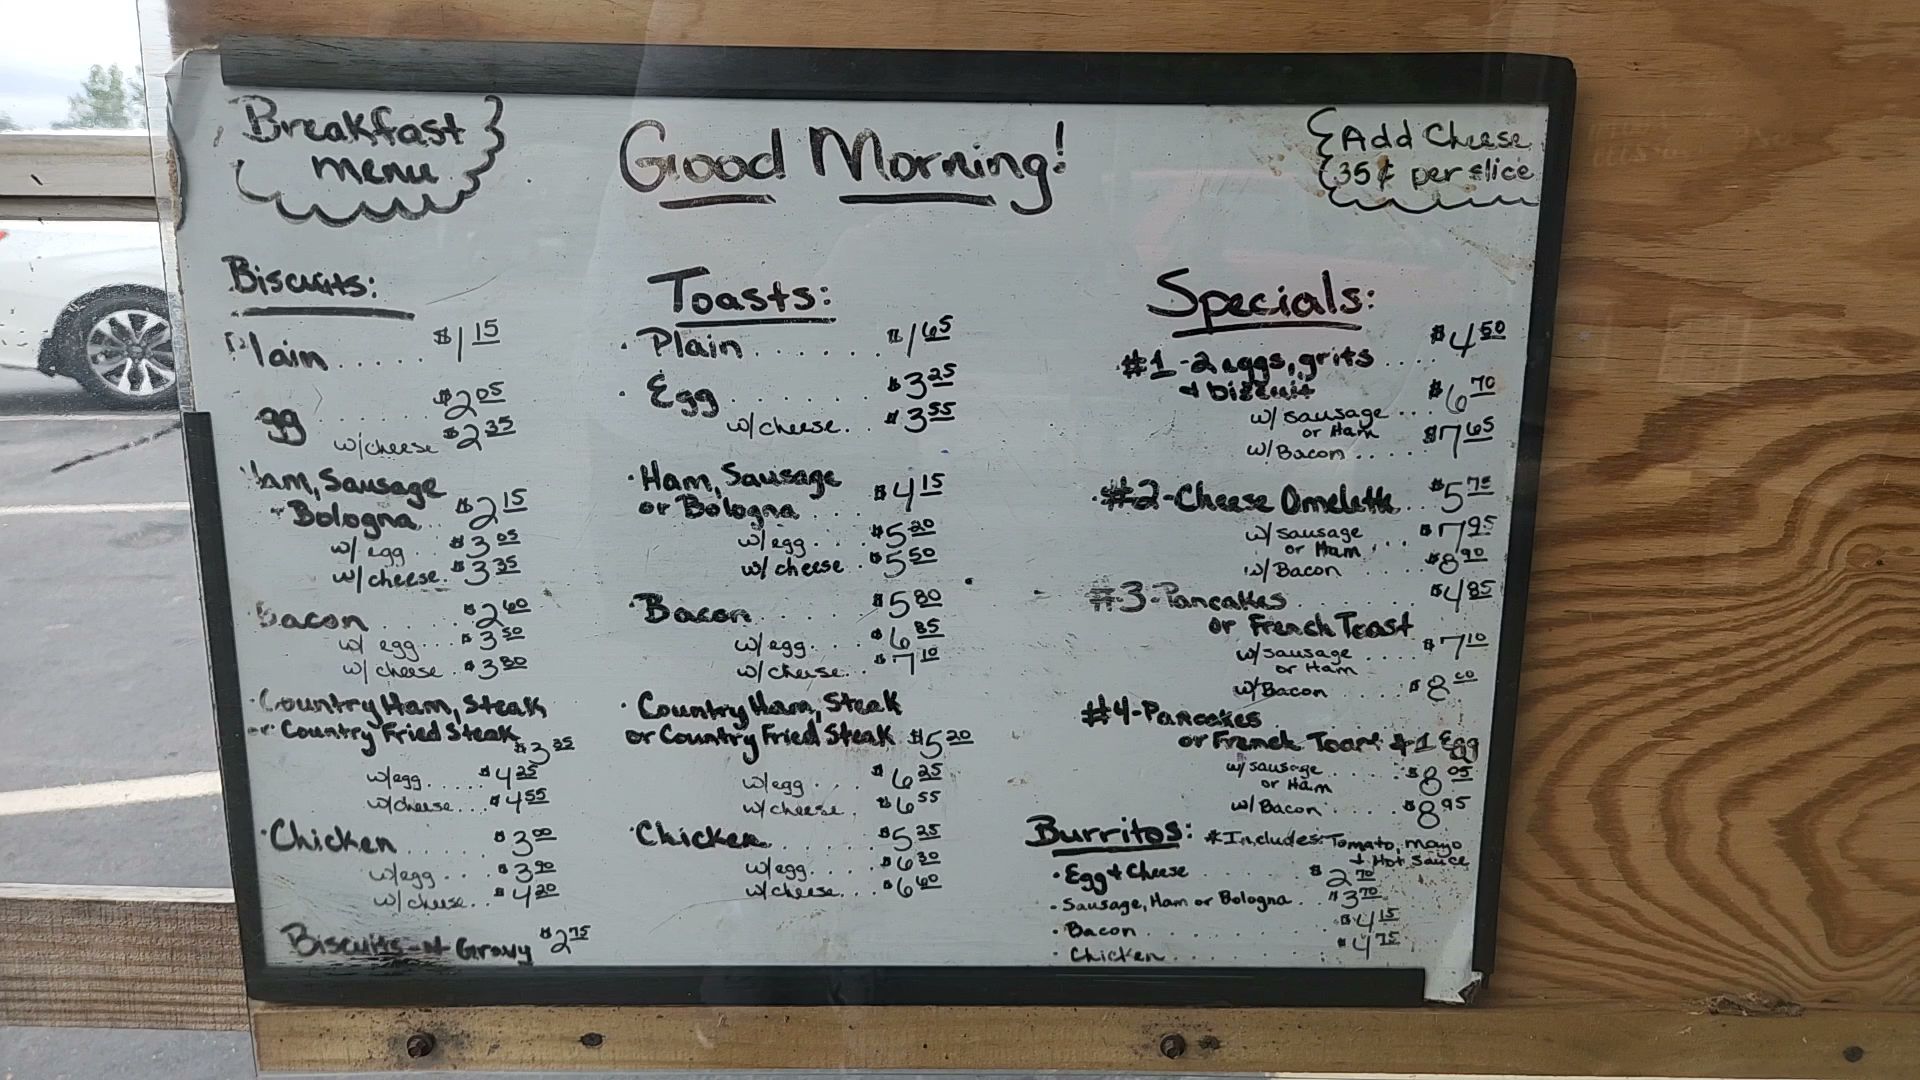 Breakfast
menu
Good Morning!
Add Cheese
35¢ per slice
Biscuits:
Plain.... $1.15
gg ........ $2.05
w/cheese $2.35
am, Sausage
Bologna.. $2.15
w/ egg.. $3.05
w/ cheese. $3.35
Bacon ..... $2.60
w/ egg... $3.50
w/ cheese. $3.80
• Country Ham, Steak
or Country Fried Steak $3.35
w/egg..... $4.25
w/cheese... $4.55
• Chicken..... $3.00
w/egg.... $3.90
w/ cheese.. $4.20
Biscuits-N-Gravy $2.75
Toasts:
• Plain....... $1.65
• Egg ........ $3.25
w/cheese.. $3.55
• Ham, Sausage
or Bologna.... $4.15
w/egg.... $5.20
w/ cheese.. $5.50
• Bacon...... $5.80
w/egg.... $6.85
w/cheese.. $7.10
• Country Ham, Steak
or Country Fried Steak $5.20
w/egg.... $6.25
w/cheese. $6.55
• Chicken....... $5.25
w/egg.... $6.30
w/cheese... $6.60
Specials:
• #1-2 eggs, grits .... $4.50
& biscuit
w/ sausage ... $6.70
or Ham
w/Bacon..... $7.65
• #2-Cheese Omelette.. $5.75
w/sausage
or Ham ... $7.95
w/Bacon $8.90
#3-Pancakes ........ $4.85
or French Toast
w/sausage ..... $7.10
or Ham
w/Bacon ..... $8.00
#4-Pancakes
or French Toast & 1 Egg
w/sausage ..... $8.05
or Ham
w/Bacon.... $8.95
Burritos: *Includes: Tomato, mayo
& Hot Sauce
• Egg & Cheese ....... $2.70
• Sausage, Ham or Bologna.. $3.70
• Bacon.......... $4.15
• Chicken......... $4.75